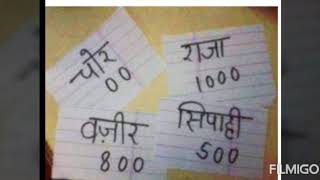 चोर
00
राजा
1000
वज़ीर
800
सिपाही
500
FILMIGO